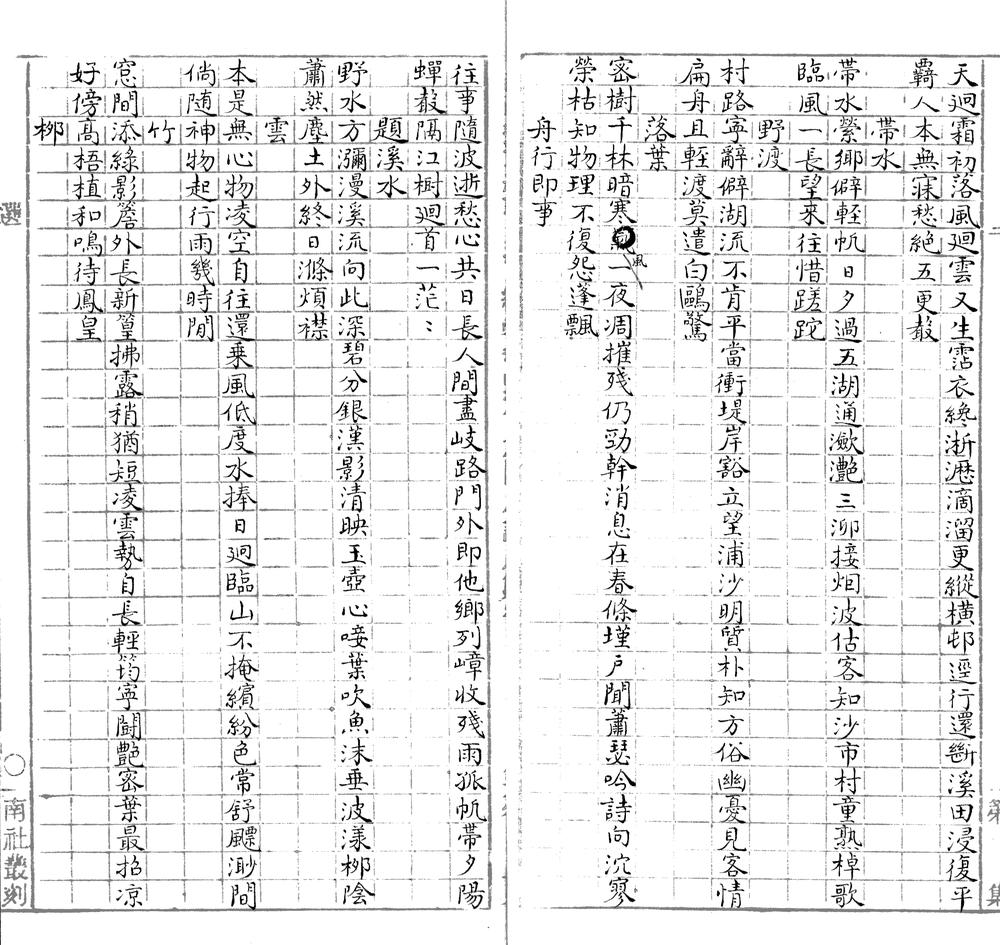 天迴霜初落風迴雲又生霑衣纔淅瀝滴溜更縱橫邨逕行還斷溪田浸復平
覊人本無寐愁絕五更嗀
帶水
帶水縈鄉僻輕帆日夕過五湖通瀲灧三泖接烟波估客知沙市村童熟棹歌
臨風一長望來往惜蹉跎
野渡
村路寧辭僻湖流不肯平當衝堤岸豁立望浦沙明質朴知方俗幽憂見客情
扁舟且輕渡莫遣白鷗驚
落葉
密樹千林暗寒風一夜凋摧殘仍勁幹消息在春條墐戶聞蕭瑟吟詩向泬寥
榮枯知物理不復怨蓬飄
舟行即事
往事隨波逝愁心共日長人間盡岐路門外即他鄉列嶂收殘雨孤帆帶夕陽
蟬嗀隔江樹迴首一茫〻
題溪水
野水方瀰漫溪流向此深碧分銀漢影清映玉壺心唼葉吹魚沫垂波漾柳陰
蕭然塵土外終日滌煩襟
雲
本是無心物凌空自往還乘風低度水捧日迴臨山不掩繽紛色常舒飃渺間
倘隨神物起行雨幾時閒
竹
窓間添綠影簷外長新篁拂露稍猶短凌雲勢自長輕筠寧鬪艷密葉最招凉
好傍高梧植和鳴待鳳皇
柳
選
〇南社叢刻
集